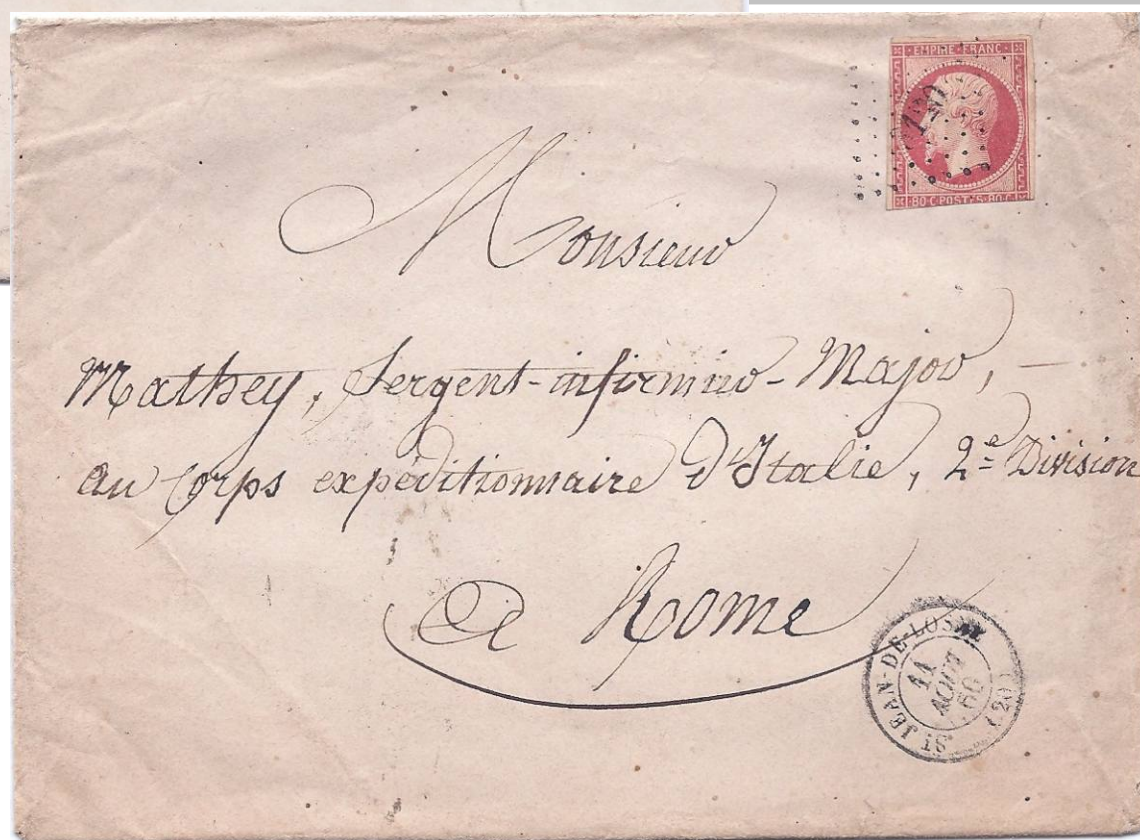 EMPIRE FRANC
80 C POSTES 80 C
Monsieur
Mathey, Sergent-infirmier-Major,
au Corps expéditionnaire d'Italie, 2e Division
à Rome
St JEAN-DE-LOSNE
11
AOUT
60
(20)